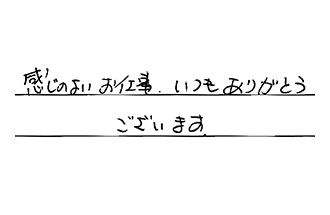 感じのよいお仕事.いつもありがとう
ございます